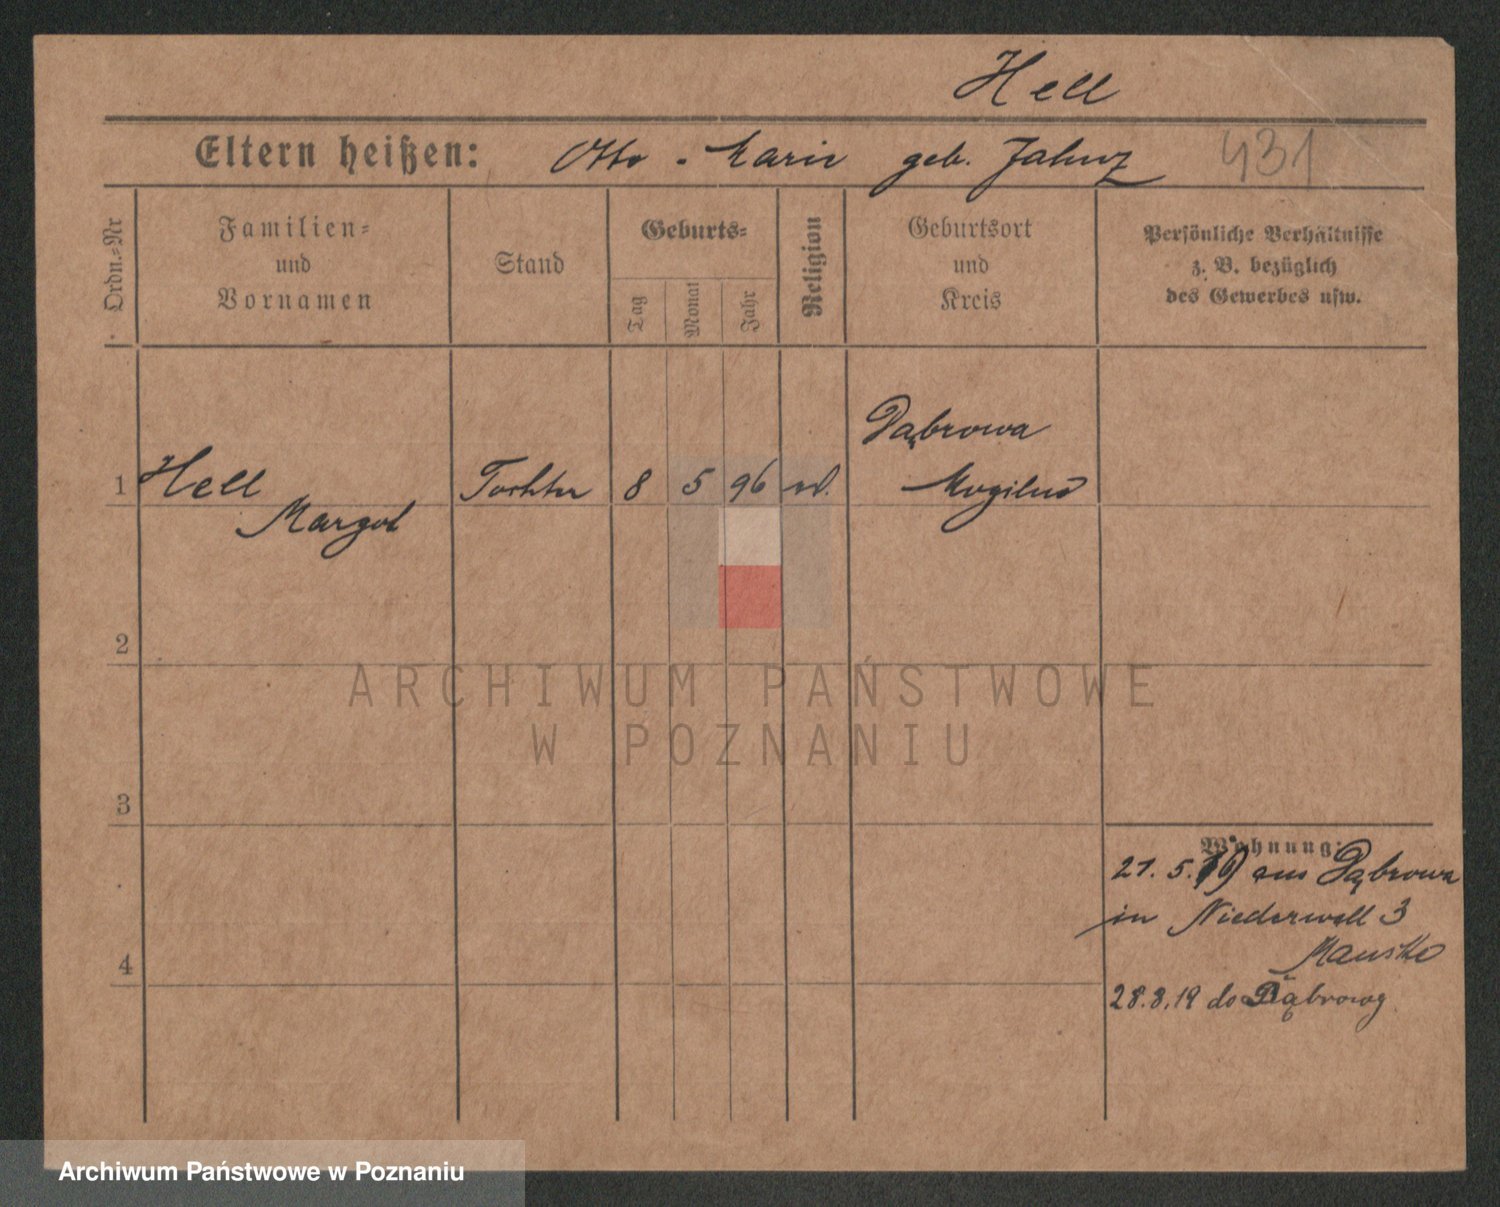 Hell
Eltern heißen: Otto - Marie geb. 431
Ordn.=Nr
Familien=
und
Vornamen
Stand
Geburts=
Tag
Monat
Jahr
Religion
Geburtsort
und
Kreis
Persönliche Verhältnisse
z. B. bezüglich
des Gewerbes usw.
Dąbrowa
1 Hell Tochter 8 5 96 Mogilno
Margot
2
ARCHIWUM PAŃSTWOWE
W POZNANIU
3
Wohnung:
21. 5. 19 aus Dąbrowa
in Niederwall 3
4
28.8.19 do Dąbrowy
Archiwum Państwowe w Poznaniu